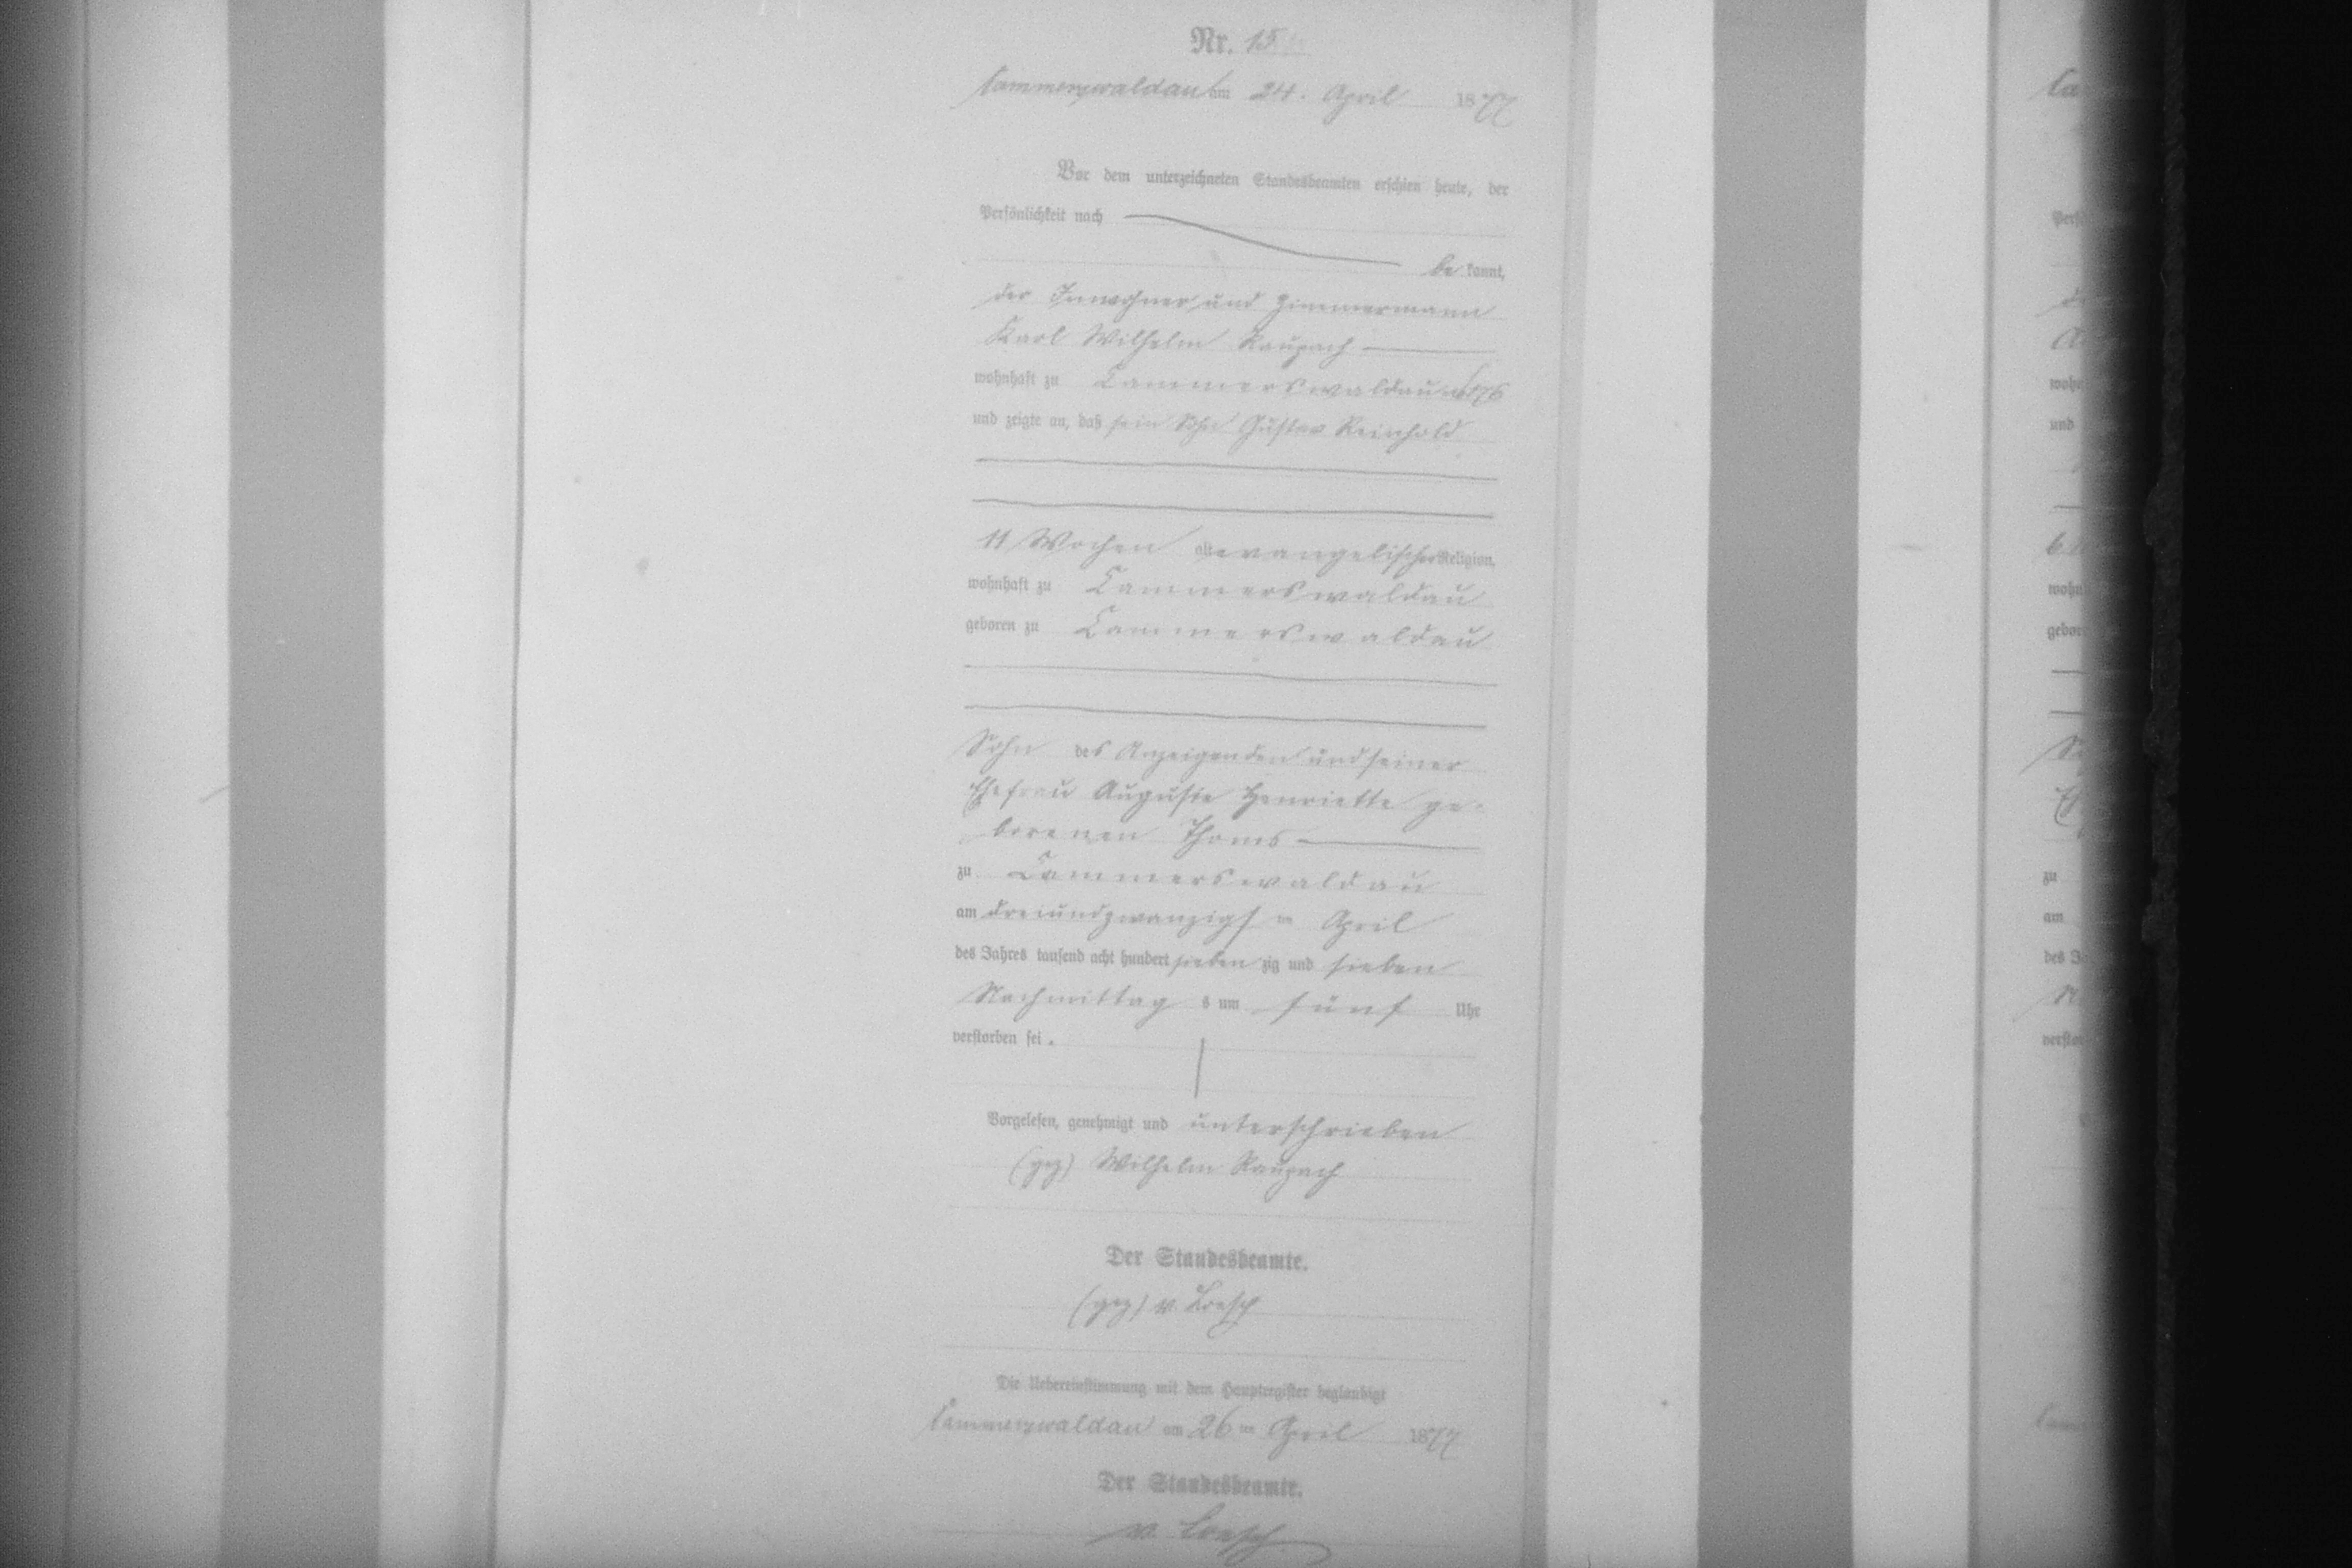 Nr. 15
Cammerswaldau am 24. April 1877
Vor dem unterzeichneten Standesbeamten erschien heute, der
Persönlichkeit nach
be kannt,
der Inwohner und Zimmermann
Karl Wilhelm Raupach
wohnhaft zu Cammerswaldau 176
und zeigte an, daß sein Sohn Gustav Reinhold
11 Wochen alt evangelischer Religion,
wohnhaft zu Cammerswaldau
geboren zu Cammerswaldau
Sohn des Anzeigenden und seiner
Ehefrau Auguste Henriette ge-
borenen Thoms
zu Cammerswaldau
am dreiundzwanzigsten April
des Jahres tausend acht hundert sieben zig und sieben
Nachmittag s um fünf Uhr
verstorben sei.
Vorgelesen, genehmigt und unterschrieben
(gez) Wilhelm Raupach
Der Standesbeamte.
(gez) v. Loesch
Die Uebereinstimmung mit dem Hauptregister beglaubigt
Cammerswaldau am 26ten April 1877
Der Standesbeamte.
v. Loesch